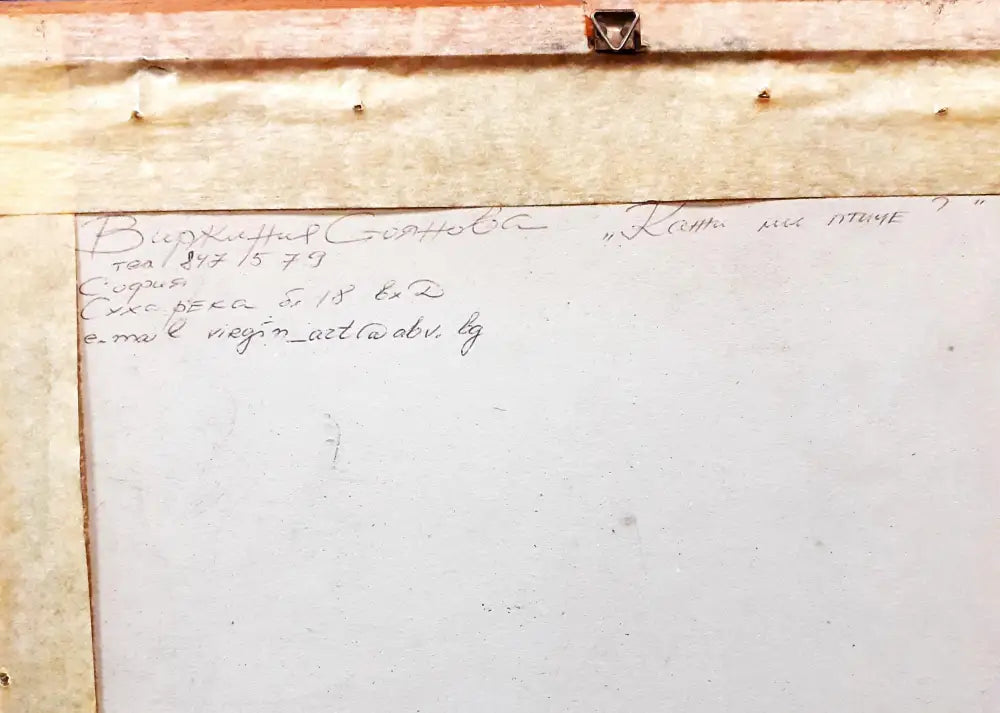 Виржиния Стоянова „Кажи ми птиче?"
тел 847 15 79
София
Суха река бл 18 вх Д
e-mail virgin_art@abv.bg